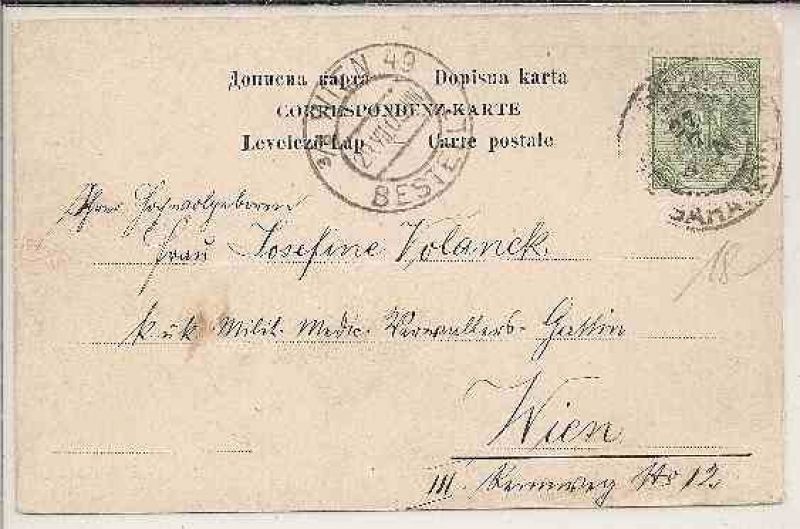 Дописна карта Dopisna karta
CORRESPONDENZ-KARTE
Levelező-Lap Carte postale
WIEN 49
BESTELLT
SARAJEVO
Ihrer Hochwolgeboren
Frau Josefine Volanek
18
k. u. k. Milit. Medic. Verwalters-Gattin
Wien
III. Rennweg Nr 12